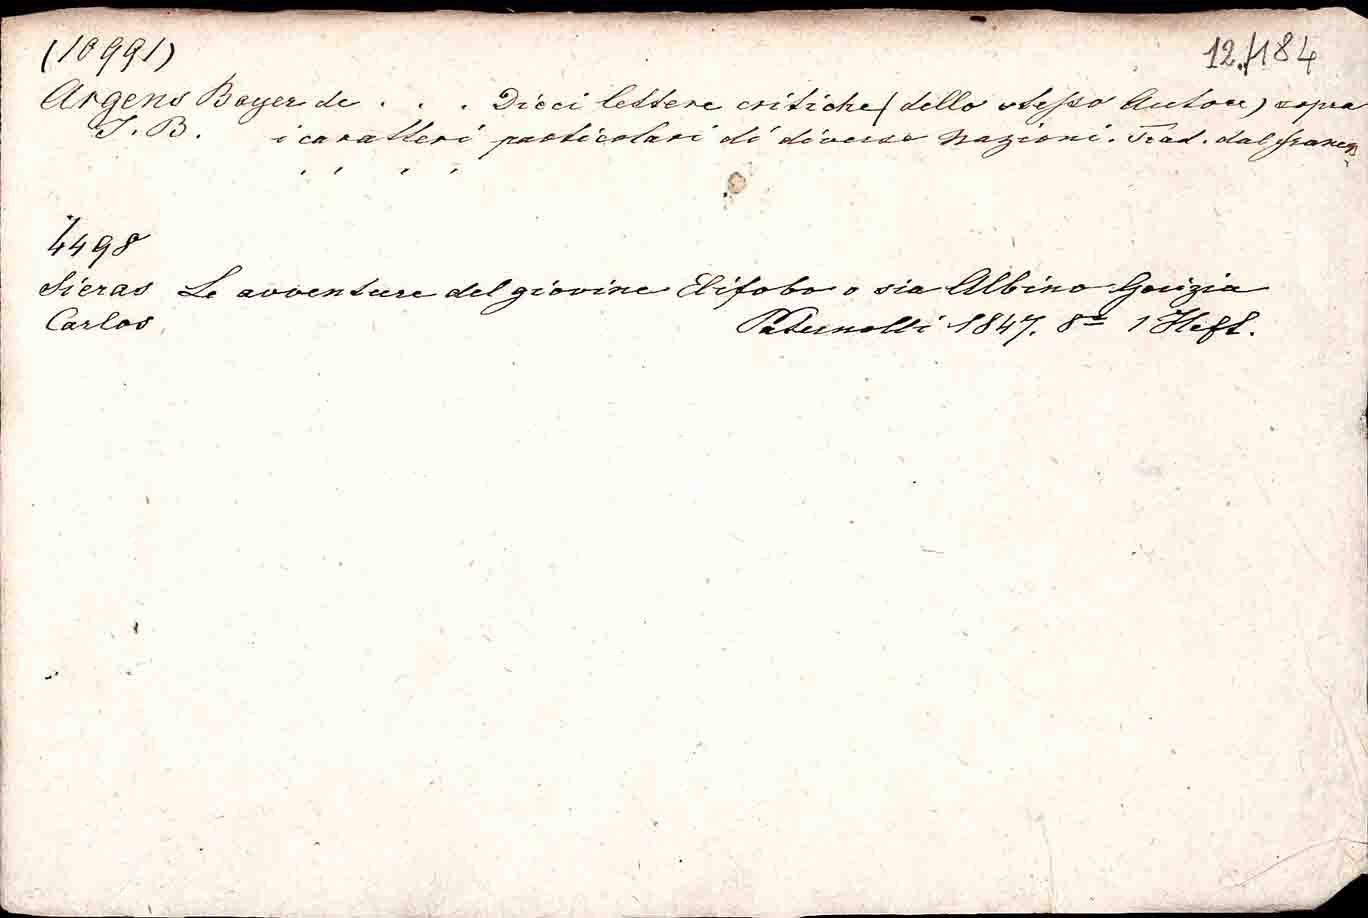 (10991)
12./184
Argens Boyer de . . . Dieci lettere critiche (dello stesso Autore) sopra
J. B. i caratteri particolari di diverse Nazioni. Trad. dal francs
4498
Sieras Le avventure del giovine Elifobo o sia Albino Gorizia
Carlos Paternolli 1847. 8º 1 Heft.